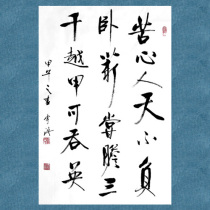 苦心人天不負
卧薪嘗膽三
千越甲可吞吴
甲午之